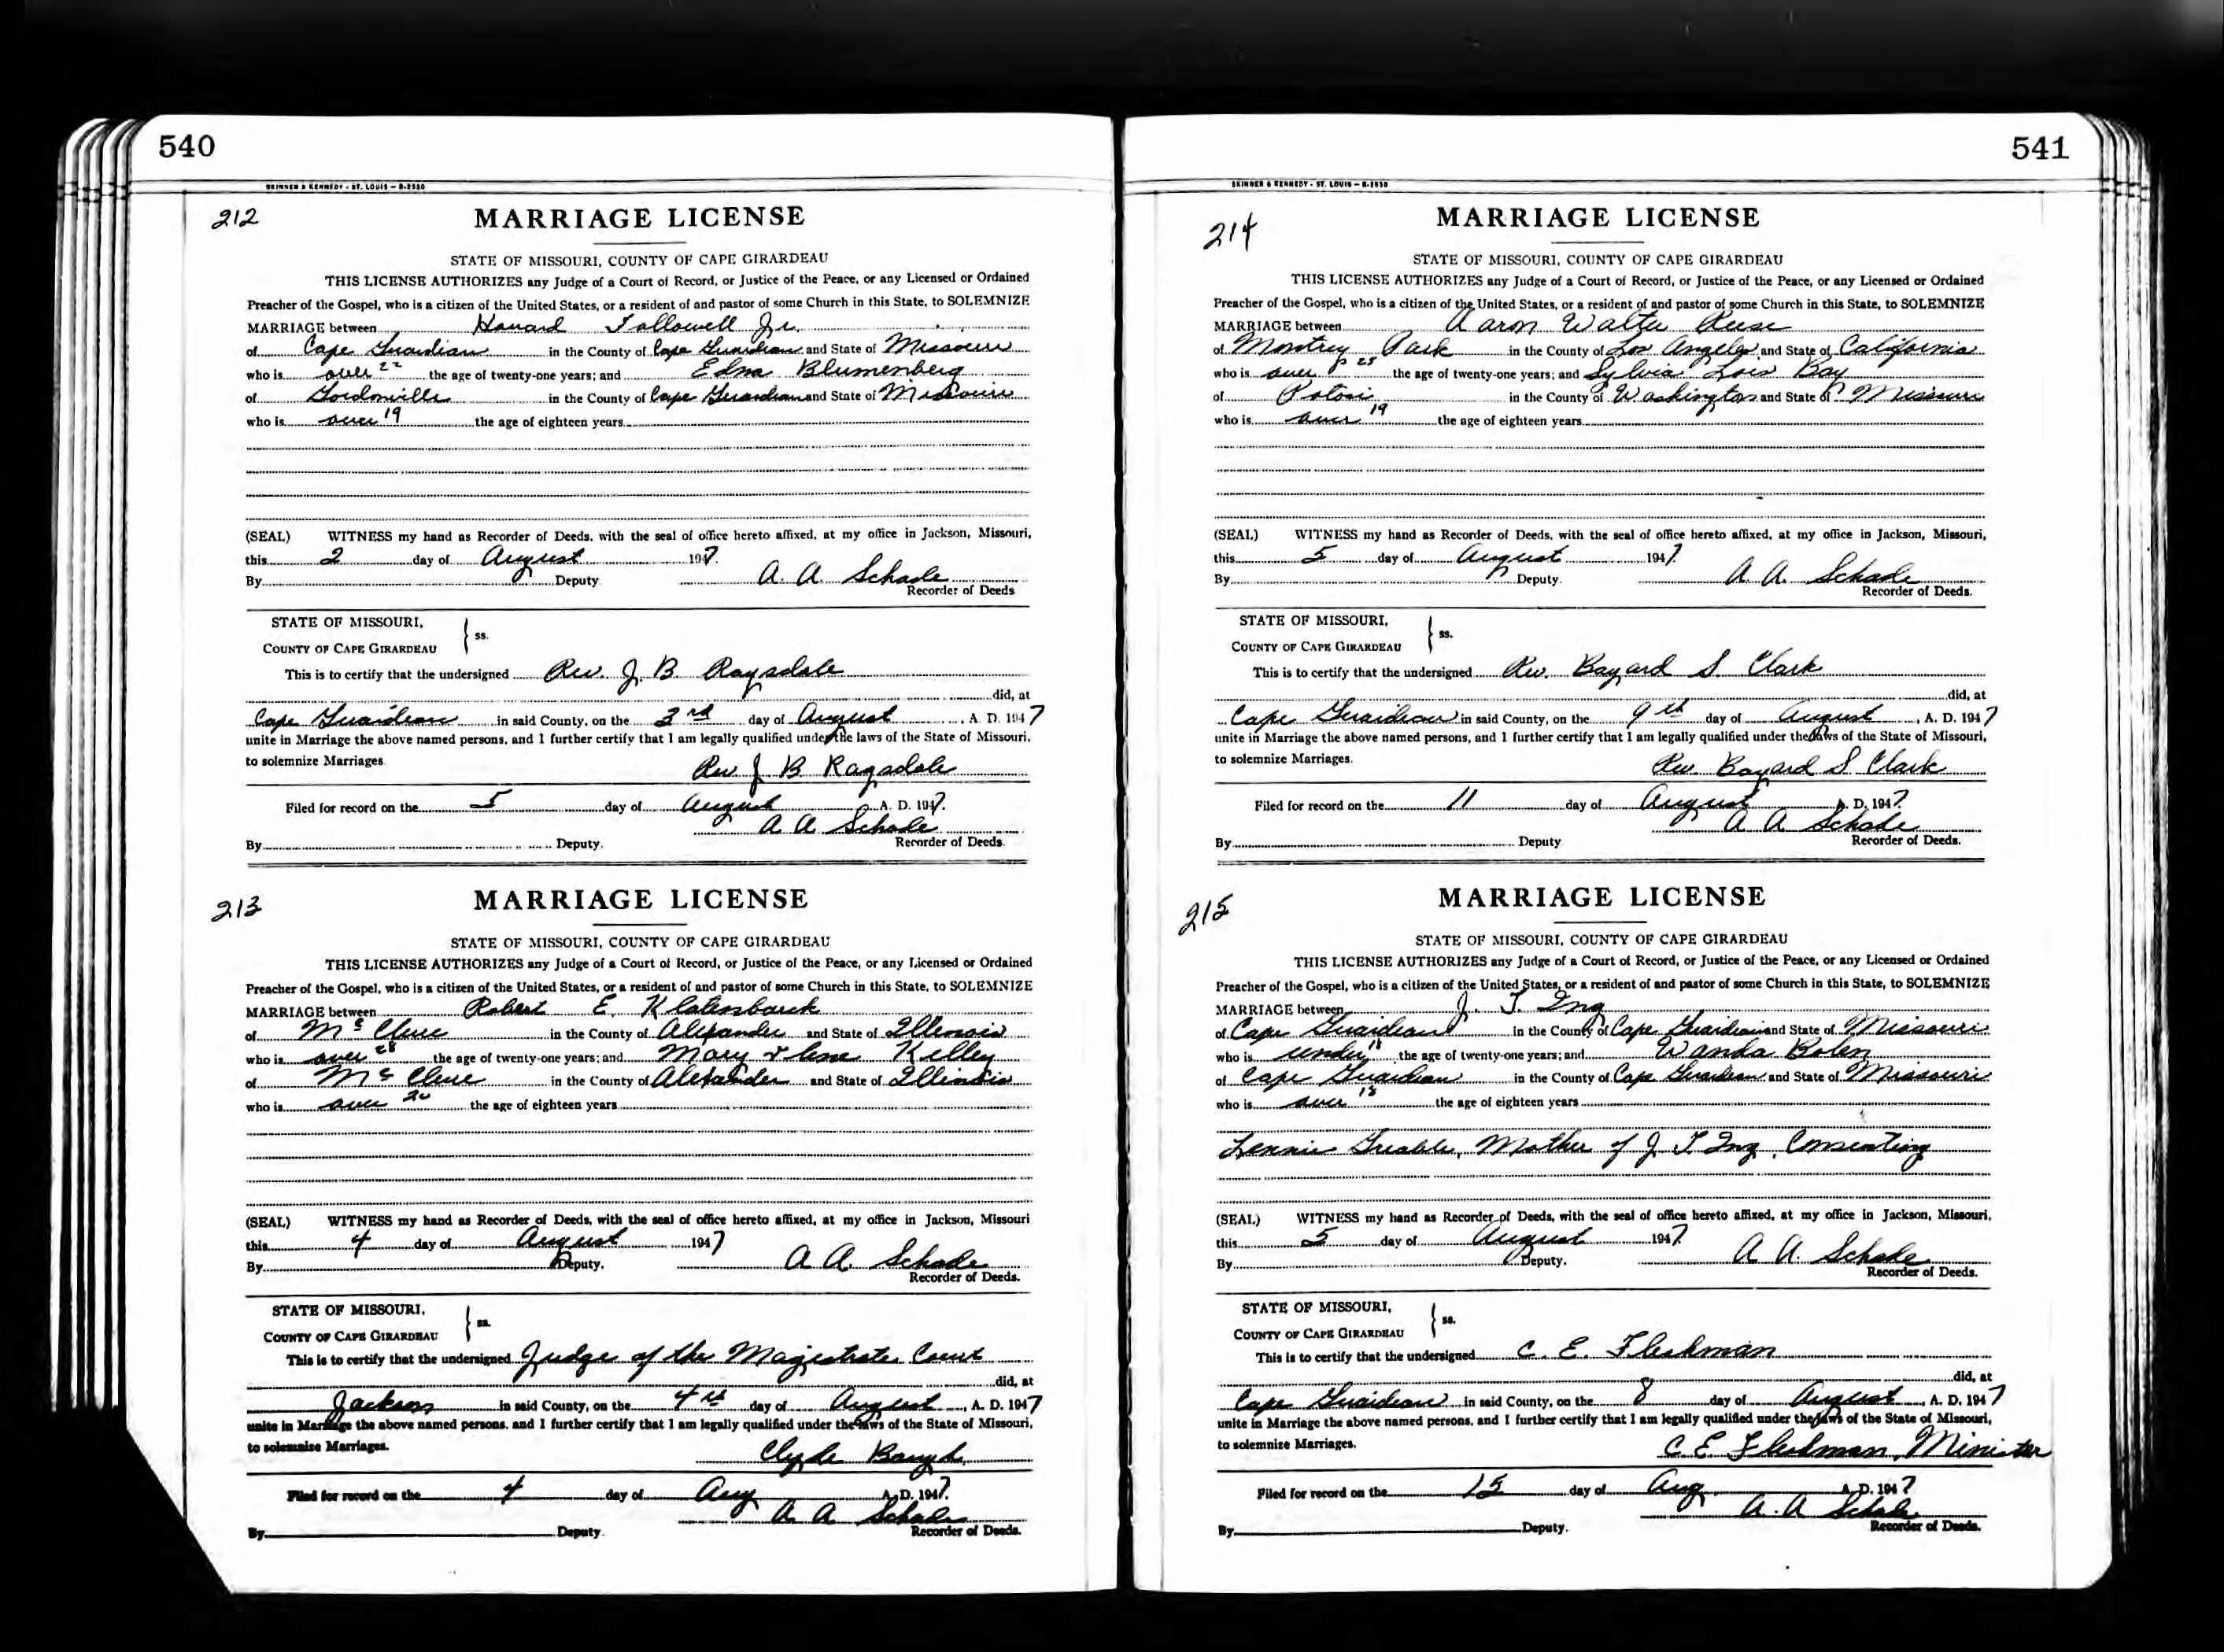 540
SKINNER & KENNEDY - ST. LOUIS - R-2550
212
MARRIAGE LICENSE
STATE OF MISSOURI, COUNTY OF CAPE GIRARDEAU
THIS LICENSE AUTHORIZES any Judge of a Court of Record, or Justice of the Peace, or any Licensed or Ordained
Preacher of the Gospel, who is a citizen of the United States, or a resident of and pastor of some Church in this State, to SOLEMNIZE
MARRIAGE between Howard Followell Jr.
of Cape Girardeau in the County of Cape Girardeau and State of Missouri
who is over 22 the age of twenty-one years; and Edna Blumenberg
of Gordonville in the County of Cape Girardeau and State of Missouri
who is over 19 the age of eighteen years
(SEAL) WITNESS my hand as Recorder of Deeds, with the seal of office hereto affixed, at my office in Jackson, Missouri,
this 2 day of August 1947.
By Deputy. A. A. Schade
Recorder of Deeds
STATE OF MISSOURI,
COUNTY OF CAPE GIRARDEAU ss.
This is to certify that the undersigned Rev. J. B. Ragsdale
did, at
Cape Girardeau in said County, on the 3rd day of August, A. D. 1947
unite in Marriage the above named persons, and I further certify that I am legally qualified under the laws of the State of Missouri,
to solemnize Marriages. Rev J B Ragsdale
Filed for record on the 5 day of August A. D. 1947.
A A Schade
By Deputy. Recorder of Deeds.
213
MARRIAGE LICENSE
STATE OF MISSOURI, COUNTY OF CAPE GIRARDEAU
THIS LICENSE AUTHORIZES any Judge of a Court of Record, or Justice of the Peace, or any Licensed or Ordained
Preacher of the Gospel, who is a citizen of the United States, or a resident of and pastor of some Church in this State, to SOLEMNIZE
MARRIAGE between Robert E.
of McClure in the County of Alexander and State of Illinois
who is over 28 the age of twenty-one years; and Mary Kelley
of McClure in the County of Alexander and State of Illinois
who is over the age of eighteen years
(SEAL) WITNESS my hand as Recorder of Deeds, with the seal of office hereto affixed, at my office in Jackson, Missouri
this 4 day of August 1947
By Deputy. A A. Schade
Recorder of Deeds.
STATE OF MISSOURI,
COUNTY OF CAPE GIRARDEAU ss.
This is to certify that the undersigned Judge of the Magistrate Court
did, at
Jackson in said County, on the 4th day of August, A. D. 1947
unite in Marriage the above named persons, and I further certify that I am legally qualified under the laws of the State of Missouri,
to solemnize Marriages. Clyde Baugh
Filed for record on the 4 day of Aug A. D. 1947.
A A Schade
By Deputy. Recorder of Deeds.
541
SKINNER & KENNEDY - ST. LOUIS - R-2550
214
MARRIAGE LICENSE
STATE OF MISSOURI, COUNTY OF CAPE GIRARDEAU
THIS LICENSE AUTHORIZES any Judge of a Court of Record, or Justice of the Peace, or any Licensed or Ordained
Preacher of the Gospel, who is a citizen of the United States, or a resident of and pastor of some Church in this State, to SOLEMNIZE
MARRIAGE between Aaron Walter Reese
of Montrey Park in the County of Los Angeles and State of California
who is over 25 the age of twenty-one years; and Sylvia Lois Bay
of Potosi in the County of Washington and State of Missouri
who is over 19 the age of eighteen years
(SEAL) WITNESS my hand as Recorder of Deeds, with the seal of office hereto affixed, at my office in Jackson, Missouri,
this 5 day of August 1947.
By Deputy. A. A. Schade
Recorder of Deeds.
STATE OF MISSOURI,
COUNTY OF CAPE GIRARDEAU ss.
This is to certify that the undersigned Rev. Bayard S. Clark
did, at
Cape Girardeau in said County, on the 9th day of August, A. D. 1947
unite in Marriage the above named persons, and I further certify that I am legally qualified under the laws of the State of Missouri,
to solemnize Marriages. Rev Bayard S. Clark
Filed for record on the 11 day of August A. D. 1947.
A A Schade
By Deputy Recorder of Deeds.
215
MARRIAGE LICENSE
STATE OF MISSOURI, COUNTY OF CAPE GIRARDEAU
THIS LICENSE AUTHORIZES any Judge of a Court of Record, or Justice of the Peace, or any Licensed or Ordained
Preacher of the Gospel, who is a citizen of the United States, or a resident of and pastor of some Church in this State, to SOLEMNIZE
MARRIAGE between J. T. Ing
of Cape Girardeau in the County of Cape Girardeau and State of Missouri
who is under 18 the age of twenty-one years; and Wanda Bolen
of Cape Girardeau in the County of Cape Girardeau and State of Missouri
who is over 18 the age of eighteen years
Lennie Greable, Mother of J T Ing, Consenting
(SEAL) WITNESS my hand as Recorder of Deeds, with the seal of office hereto affixed, at my office in Jackson, Missouri,
this 5 day of August 1947.
By Deputy. A A. Schade
Recorder of Deeds.
STATE OF MISSOURI,
COUNTY OF CAPE GIRARDEAU ss.
This is to certify that the undersigned C. E. Fleshman
did, at
Cape Girardeau in said County, on the 8 day of August, A. D. 1947
unite in Marriage the above named persons, and I further certify that I am legally qualified under the laws of the State of Missouri,
to solemnize Marriages. C. E Fleshman, Minister
Filed for record on the 15 day of Aug. A. D. 1947
A. A Schade
By Deputy. Recorder of Deeds.